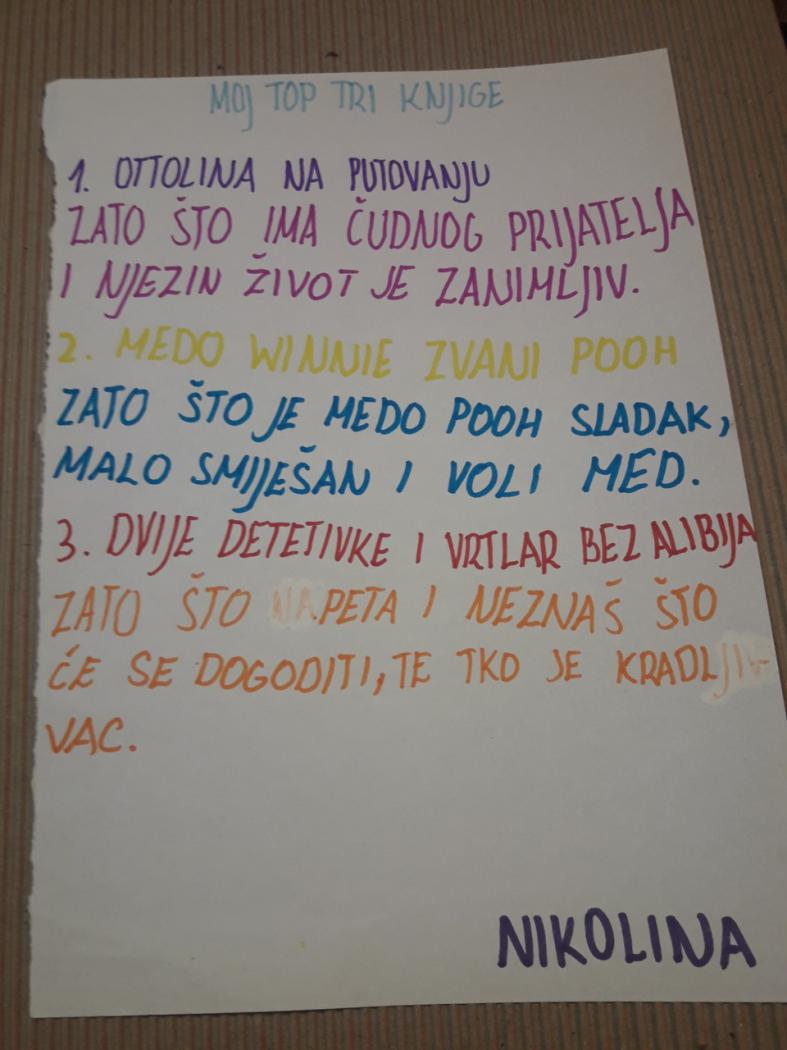 MOJ TOP TRI KNJIGE
1. OTTOLINA NA PUTOVANJU
ZATO ŠTO IMA ČUDNOG PRIJATELJA
I NJEZIN ŽIVOT JE ZANIMLJIV.
2. MEDO WINNIE ZVANI POOH
ZATO ŠTO JE MEDO POOH SLADAK,
MALO SMIJEŠAN I VOLI MED.
3. DVIJE DETETIVKE I VRTLAR BEZ ALIBIJA
ZATO ŠTO NAPETA I NEZNAŠ ŠTO
ĆE SE DOGODITI, TE TKO JE KRADLJI-
VAC.
NIKOLINA